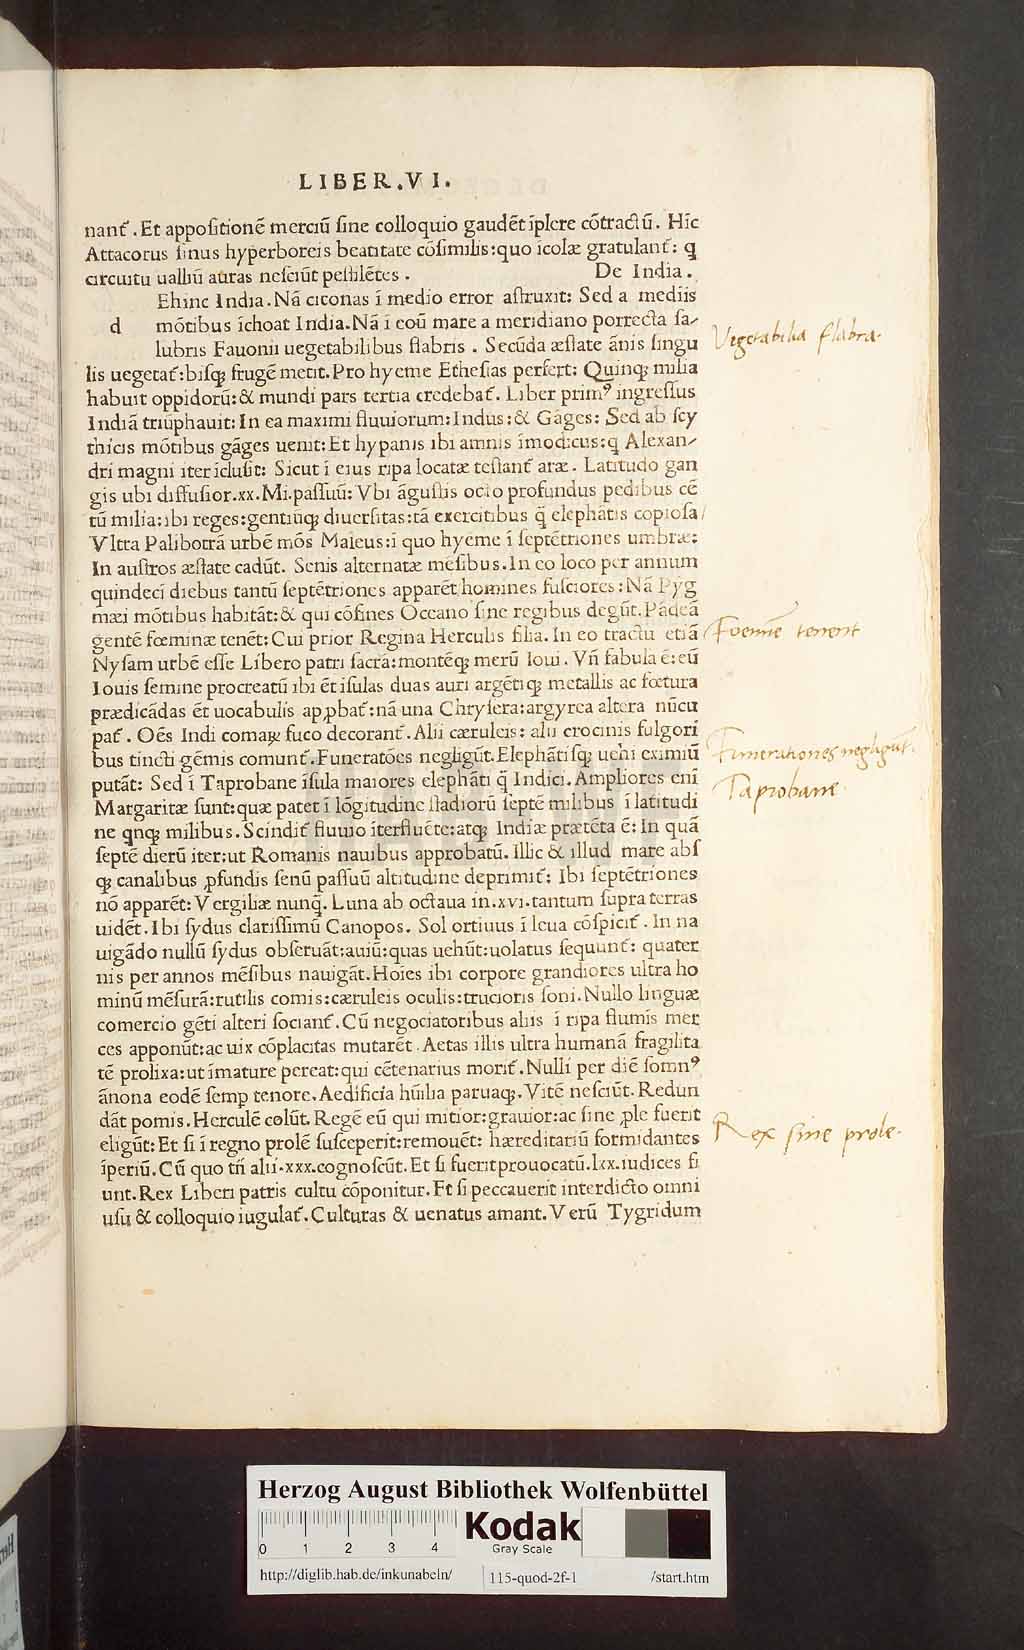 LIBER.VI.
nant᷒. Et appoſitionē merciū ſine colloquio gaudēt īplere cōtractū. Hīc
Attacorus ſinus hyperboreis beatitate cōſimilis:quo īcolæ gratulant᷒: ꝗ
circuitu ualliū auras neſciūt peſtilētes. De India.
Ehinc India. Nā ciconas ī medio error aſtruxit: Sed a mediis
d mōtibus īchoat India. Nā ī eoū mare a meridiano porrecta ſa-
lubris Fauonii uegetabilibus flabris. Secūda æſtate ānis ſingu
lis uegetat᷒:biſqꝫ frugē metit. Pro hyeme Etheſias perfert: Quinqꝫ milia
habuit oppidorū:& mundi pars tertia credebat᷒. Liber primꝰ ingreſſus
Indiā triūphauit: In ea maximi fluuiorum: Indus:& Gāges: Sed ab ſcy
thicis mōtibus gāges uenit: Et hypanis ibi amnis īmodicus:ꝗ Alexan-
dri magni iter īcluſit: Sicut ī eius ripa locatæ teſtant᷒ aræ. Latitudo gan
gis ubi diffuſior.xx. Mi.paſſuū: Vbi āguſtis octo profundus pedibus cē
tū milia:ibi reges:gentiūqꝫ diuerſitas:tā exercitibus q̄ elephātis copioſa/
Vltra Palibotrā urbē mōs Maleus:ī quo hyeme ī ſeptētriones umbræ:
In auſtros æſtate cadūt. Senis alternatæ mēſibus. In eo loco per annum
quindecī diebus tantū ſeptētriones apparēt homines fuſciores: Nā Pyg
mæi mōtibus habitāt:& qui cōfines Oceano ſine regibus degūt. Pādeā
gentē fœminæ tenēt: Cui prior Regina Herculis filia. In eo tractu etiā
Nyſam urbē eſſe Libero patri ſacrā:montēqꝫ merū Ioui. Vn̄ fabula ē:eū
Iouis ſemine procreatū ibi ēt iſulas duas auri argētiqꝫ metallis ac fœtura
prædicādas ēt uocabulis apꝓbat᷒:nā una Chryſera:argyrea altera nūcu
pat᷒. Oēs Indi comaꝝ fuco decorant᷒. Alii cæruleis: alii crocinis fulgorī
bus tincti gēmis comunt᷒. Funeratōes negligūt. Elephātiſqꝫ uehi eximiū
putāt: Sed ī Taprobane īſula maiores elephāti q̄ Indici. Ampliores enī
Margaritæ ſunt:quæ patet ī lōgitudine ſtadiorū ſeptē milibus ī latitudi
ne qnqꝫ milibus. Scindit᷒ fluuio īterfluēte:atqꝫ Indiæ prætēta ē: In quā
ſeptē dierū iter:ut Romanis nauibus approbatū. Illic & illud mare abſ
qꝫ canalibus ꝓfundis ſenū paſſuū altitudine deprimit᷒: Ibi ſeptētriones
nō apparēt: Vergiliæ nunq̄. Luna ab octaua in.xvi.tantum ſupra terras
uidēt. Ibi ſydus clariſſimū Canopos. Sol ortiuus ī leua cōſpicit᷒. In na
uigādo nullū ſydus obſeruāt:auiū:quas uehūt:uolatus ſequunt᷒: quater
nis per annos mēſibus nauigāt. Hoīes ibi corpore grandiores ultra ho
minū mēſurā:rutilis comis:cæruleis oculis:trucioris ſoni. Nullo linguæ
comercio gēti alteri ſociant᷒. Cū negociatoribus aliis ī ripa flumīs mer
ces apponūt:ac uix cōplacitas mutarēt. Aetas illis ultra humanā fragilita
tē prolixa:ut īmature pereat:qui cētenarius morit᷒. Nulli per diē ſomnꝰ
ānona eodē ſemp tenore. Aedificīa hūilia paruaqꝫ. Vitē neſciūt. Redun
dāt pomis. Herculē colūt. Regē eū qui mitior:grauior:ac ſine ꝓle fuerit
eligūt: Et ſi ī regno prolē ſuſceperit:remouēt: hæreditariū formidantes
īperiū. Cū quo tn̄ alii.xxx.cognoſcūt. Et ſi fuerit prouocatū.lxx.iudices fi
unt. Rex Liberi patris cultu cōponitur. Et ſi peccauerit interdicto omni
uſu & colloquio iugulat᷒. Culturas & uenatus amant. Verū Tygridum
Vegetabilia flabra.
Foemīe tenent
Funerationes negligūt.
Taprobane.
Rex ſine prole.
Herzog August Bibliothek Wolfenbüttel
0 1 2 3 4
Kodak
Gray Scale
http://diglib.hab.de/inkunabeln/ 115-quod-2f-1 /start.htm